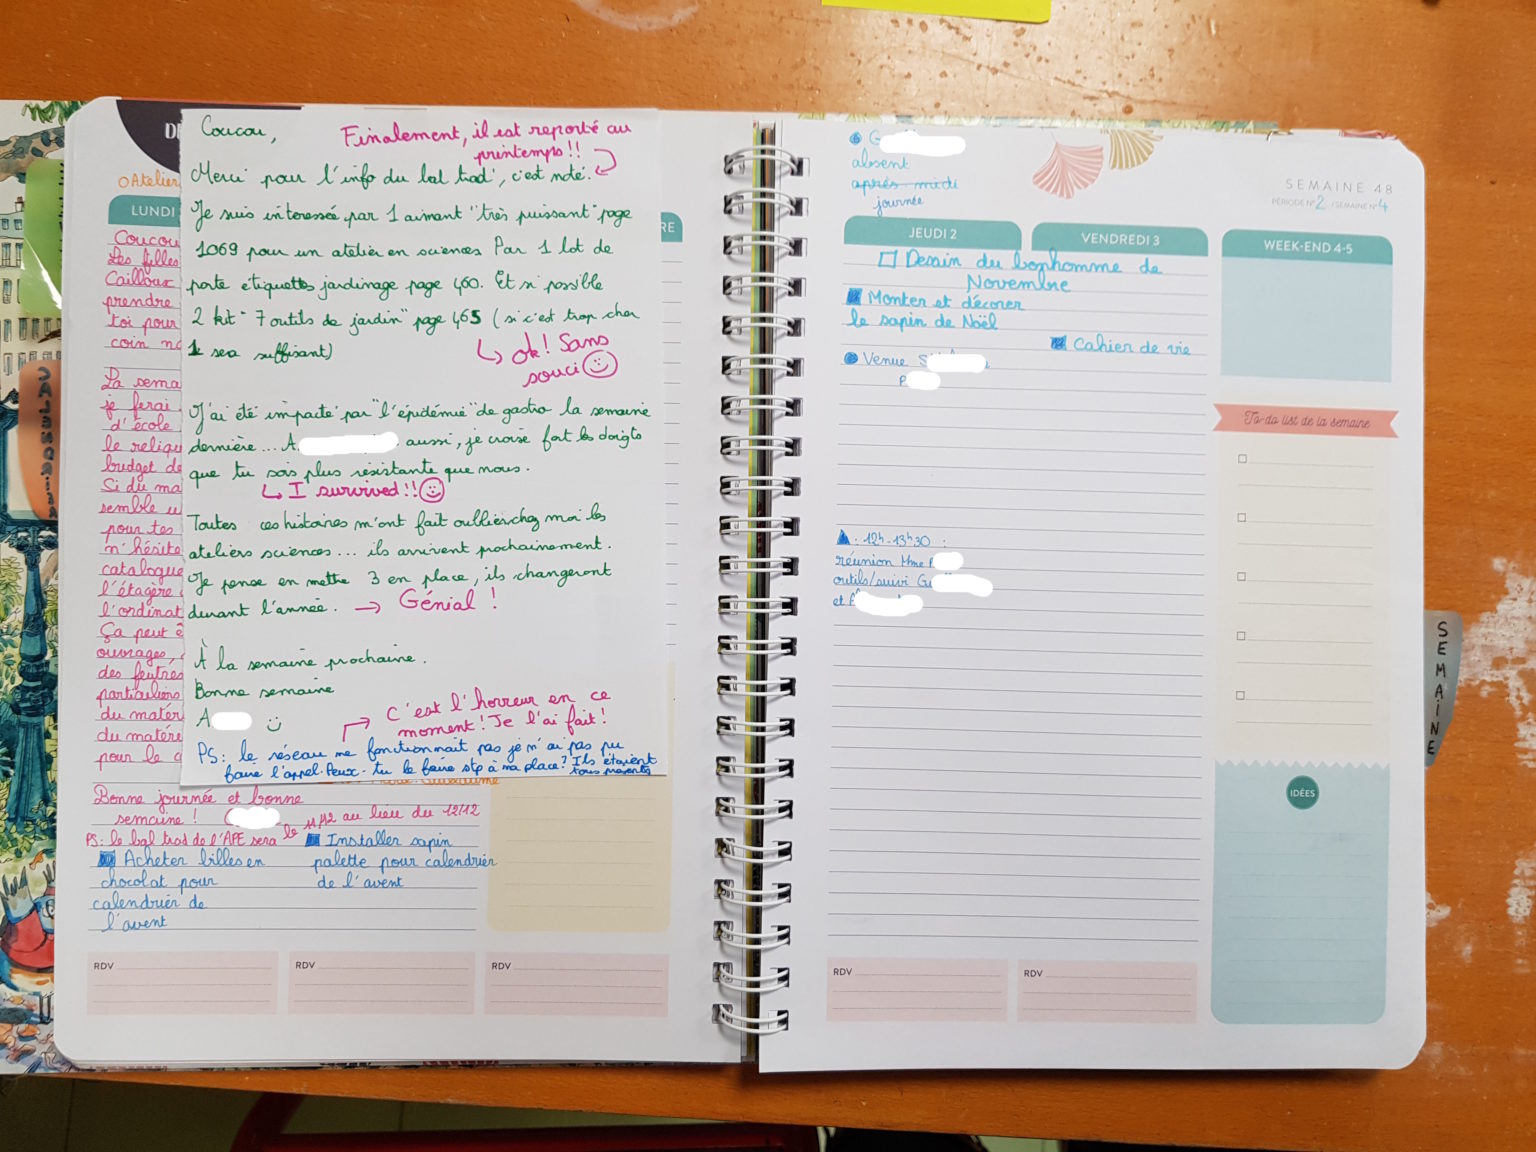 Coucou,
Finalement, il est reporté au
printemps!!
Merci pour l'info du bal trad', c'est noté.
Je suis interessée par 1 aimant "très puissant" page
1069 pour un atelier en sciences Par 1 lot de
porte étiquettes jardinage page 460. Et si possible
2 kit "7 outils de jardin" page 465 (si c'est trop cher
1 sera suffisant)
ok! Sans
souci
J'ai été impacté par "l'épidémie" de gastro la semaine
dernière... A aussi, je croise fort les doigts
que tu sois plus résistante que nous.
I survived!!
Toutes ces histoires m'ont fait oublier chez moi les
ateliers sciences... ils arrivent prochainement.
Je pense en mettre 3 en place, ils changeront
durant l'année. → Génial !
À la semaine prochaine.
Bonne semaine
A
C'est l'horreur en ce
moment! Je l'ai fait!
PS: le réseau ne fonctionnait pas je n'ai pas pu
faire l'appel. Peux-tu le faire stp à ma place? Ils étaient
tous présents
Atelier
LUNDI
RE
Coucou
Les filles
Cailloux
prendre
toi pour
coin
La sema
je ferai
d'école
le reliqu
budget de
Si du ma
semble u
pour tes
n'hésite
catalogue
l'étagère
l'ordinat
Ça peut ê
ouvrages,
des feutres
particuliers
du matér
du matére
pour le
Bonne journée et bonne
semaine !
PS: le bal trad de l'APE sera le 11/12 au lieu du 12/12
Acheter billes en
chocolat pour
calendrier de
l'avent
Installer sapin
palette pour calendrier
de l'avent
RDV
RDV
RDV
G
absent
après-midi
journée
SEMAINE 48
PÉRIODE N° 2 / SEMAINE N° 4
JEUDI 2
VENDREDI 3
WEEK-END 4-5
Dessin du bonhomme de
Novembre
Monter et décorer
le sapin de Noël
Cahier de vie
Venue S
P
12h-13h30 :
réunion Mme P
outils/suivi Gu
et
To-do list de la semaine
IDÉES
RDV
RDV
SEMAINE